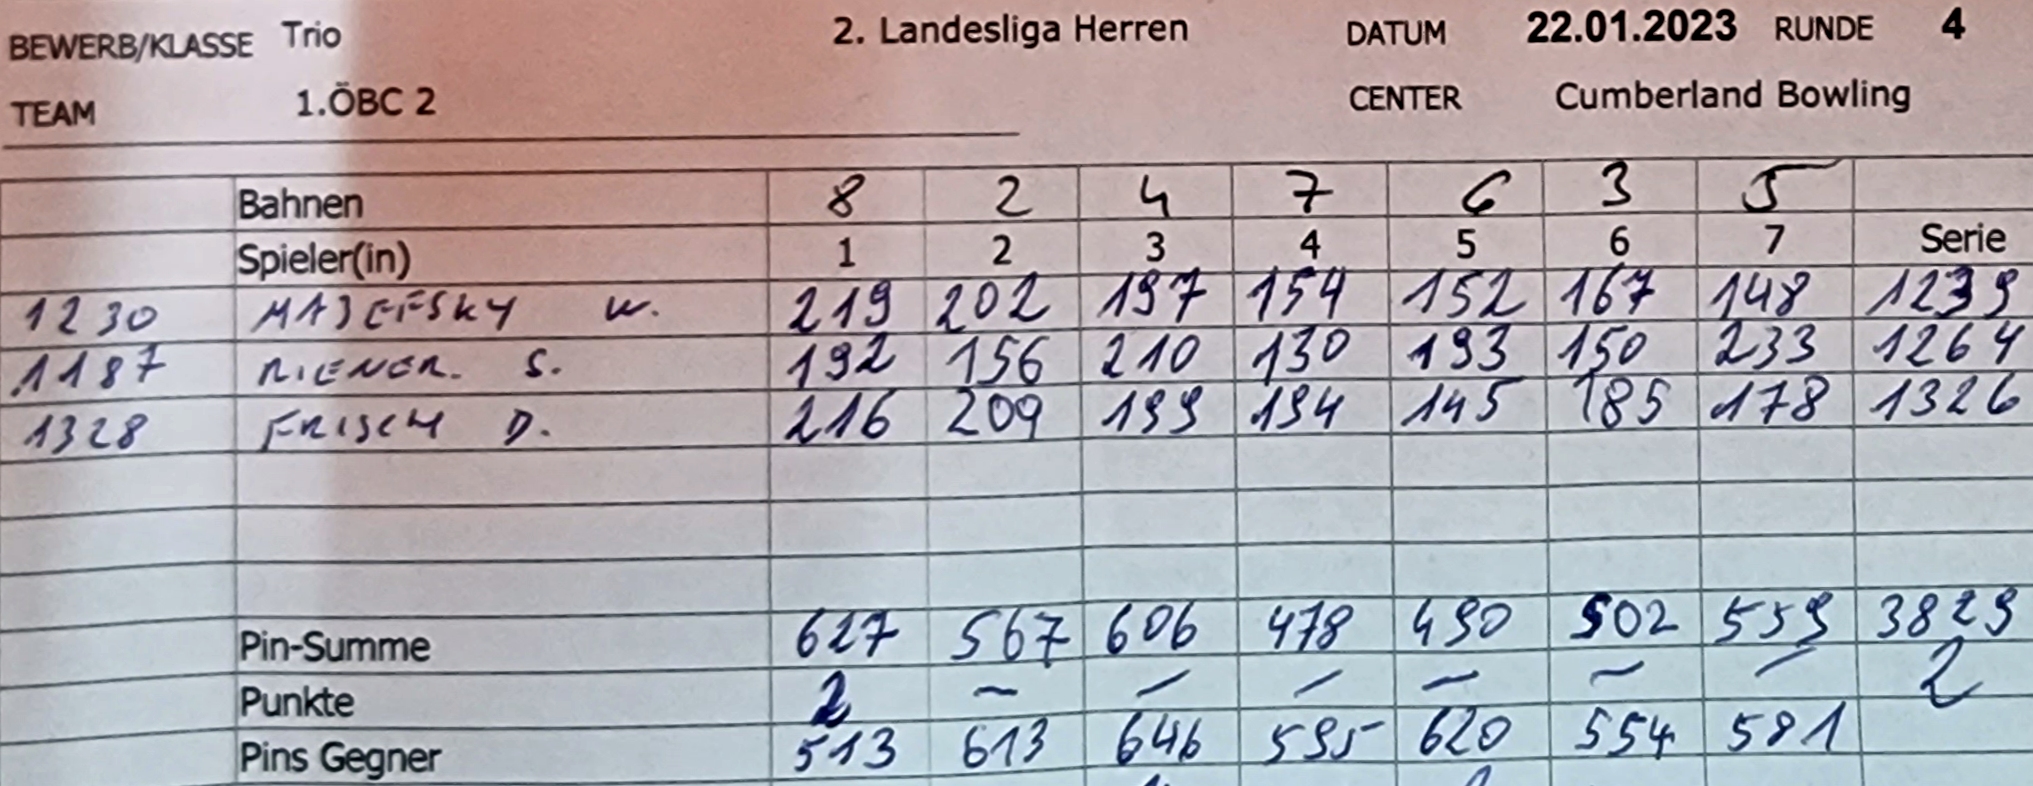 BEWERB/KLASSE Trio 2. Landesliga Herren DATUM 22.01.2023 RUNDE 4
TEAM 1.ÖBC 2 CENTER Cumberland Bowling
Bahnen 8 2 4 7 6 3 5
Spieler(in) 1 2 3 4 5 6 7 Serie
1230 MAJEFSKY W. 219 202 197 154 152 167 148 1239
1187 RIENER. S. 192 156 210 130 193 150 233 1264
1328 FRISCH D. 216 209 199 194 145 185 178 1326
Pin-Summe 627 567 606 478 490 502 559 3829
Punkte 2 – – – – – – 2
Pins Gegner 513 613 646 595 620 554 581